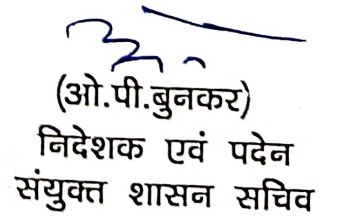 (ओ.पी.बुनकर)
निदेशक एवं पदेन
संयुक्त शासन सचिव